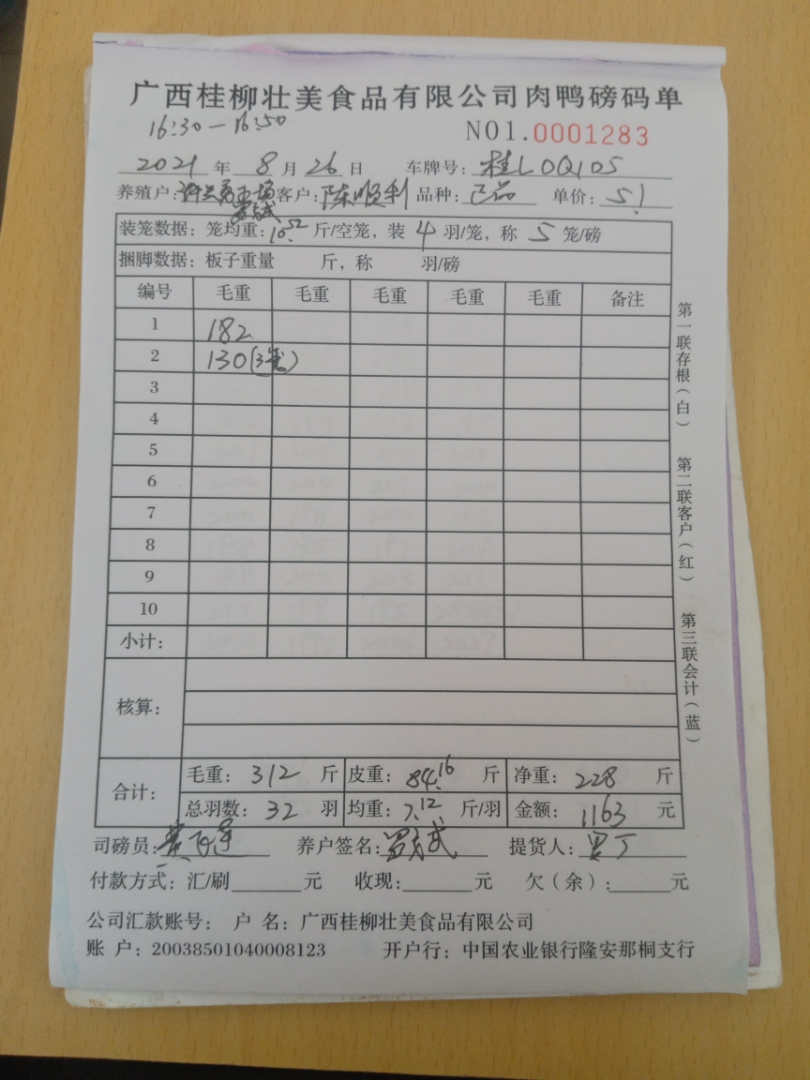 广西桂柳壮美食品有限公司肉鸭磅码单
16:30-16:50
NO1.0001283
2021年8月26日 车牌号:桂L0Q105
养殖户: 客户:陈顺利 品种: 单价:5.1
装笼数据:笼均重:10.52斤/空笼,装4羽/笼,称5笼/磅
捆脚数据:板子重量 斤,称 羽/磅
编号 毛重 毛重 毛重 毛重 毛重 备注
1 182
2 130(3笼)
3
4
5
6
7
8
9
10
小计:
核算:
合计: 毛重:312斤 皮重:84.16斤 净重:228斤
总羽数:32羽 均重:7.12斤/羽 金额:1163元
司磅员: 养户签名: 提货人:
付款方式:汇/刷 元 收现: 元 欠(余): 元
公司汇款账号: 户 名:广西桂柳壮美食品有限公司
账 户:20038501040008123 开户行:中国农业银行隆安那桐支行
第一联存根(白) 第二联客户(红) 第三联会计(蓝)